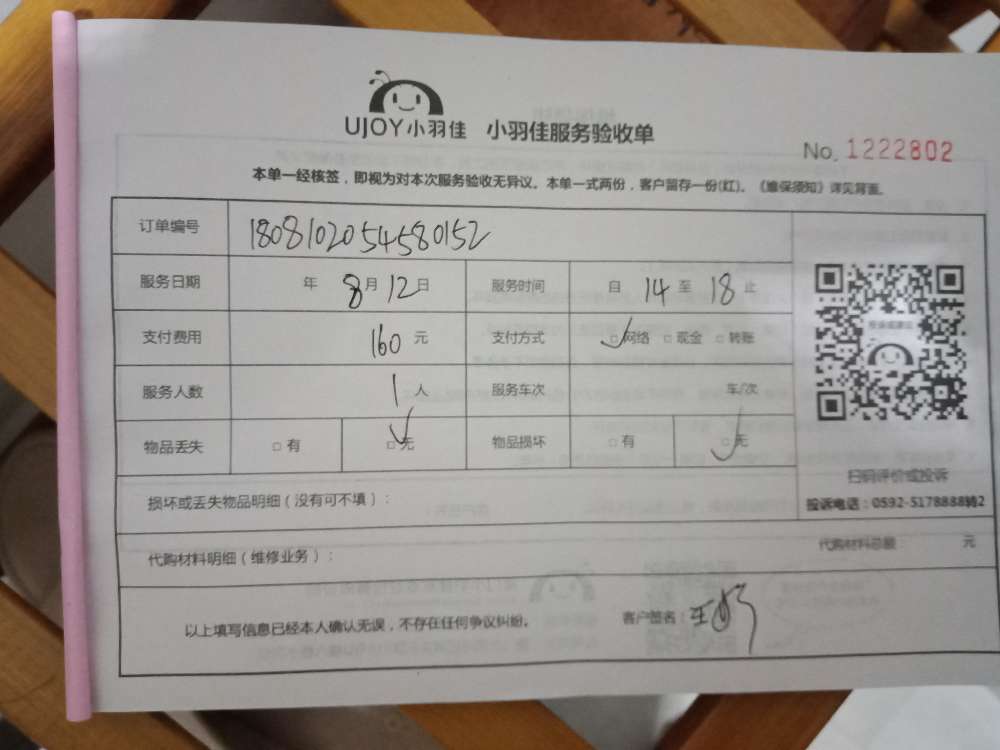 UJOY小羽佳 小羽佳服务验收单
No. 1222802
本单一经核签，即视为对本次服务验收无异议。本单一式两份，客户留存一份(红)。《维保须知》详见背面。
订单编号 1808102054580152
服务日期 年 8月12日 服务时间 自 14 至 18 止
支付费用 160 元 支付方式 □网络 □现金 □转账
服务人数 1 人 服务车次 车/次
物品丢失 □有 □无 物品损坏 □有 □无
扫码评价或投诉
投诉电话：0592-5178888转2
损坏或丢失物品明细（没有可不填）：
代购材料明细（维修业务）： 代购材料总额 元
以上填写信息已经本人确认无误，不存在任何争议纠纷。 客户签名：王